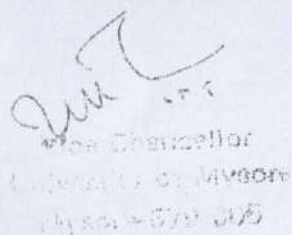 Vice Chancellor
University of Mysore
Mysore-570 005